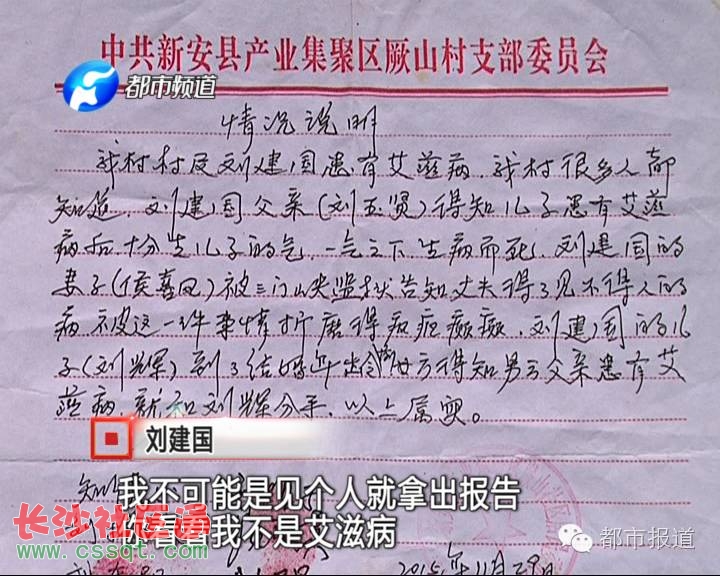 中共新安县产业集聚区厥山村支部委员会
都市频道
情况说明
我村村民刘建国患有艾滋病，我村很多人都
知道，刘建国父亲（刘玉贤）得知儿子患有艾滋
病后，十分生儿子的气，一气之下，生病而死，刘建国的
妻子（侯喜凤）被三门峡监狱告知丈夫得了见不得人的
病，被这一件事情折磨得疯疯癫癫，刘建国的儿
子（刘辉）到了结婚年龄，女方得知男方父亲患有艾
滋病，就和刘辉分手，以上属实。
刘建国
我不可能是见个人就拿出报告
看看我不是艾滋病
长沙社区通
www.cssqt.com
都市报道
2015年11月29日